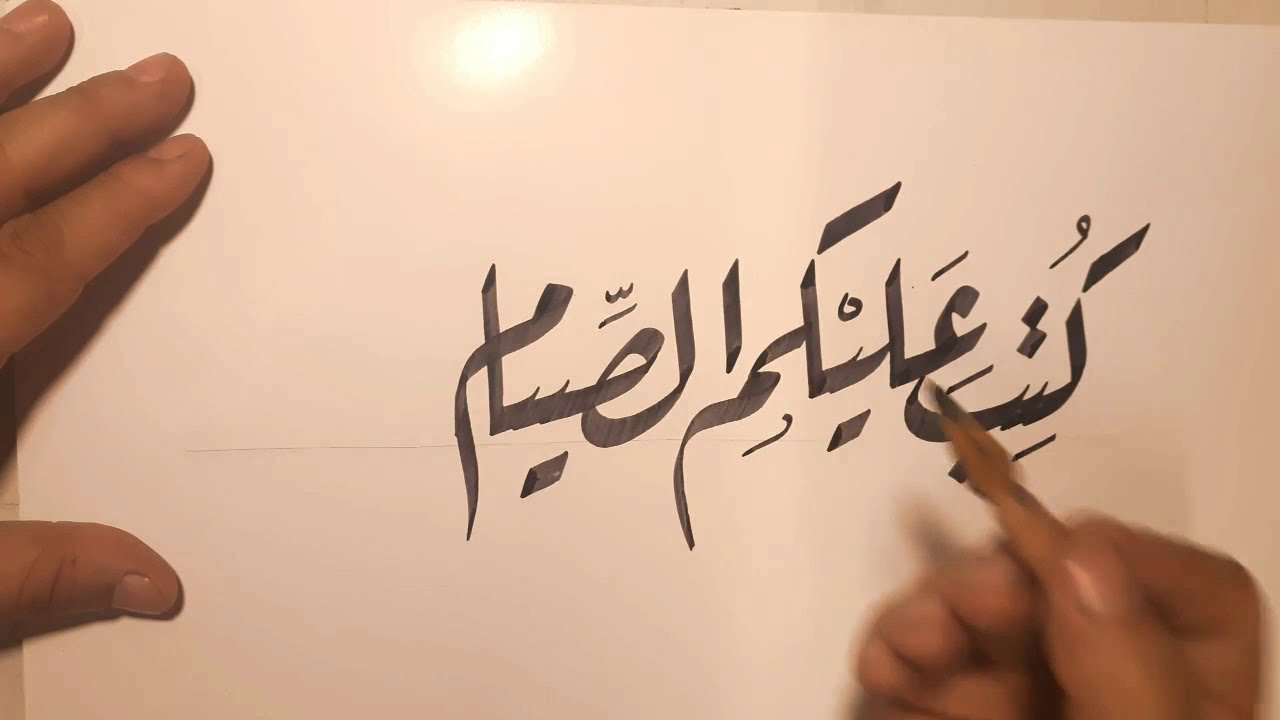 كُتِبَ عَلَيْكُمُ الصِّيام